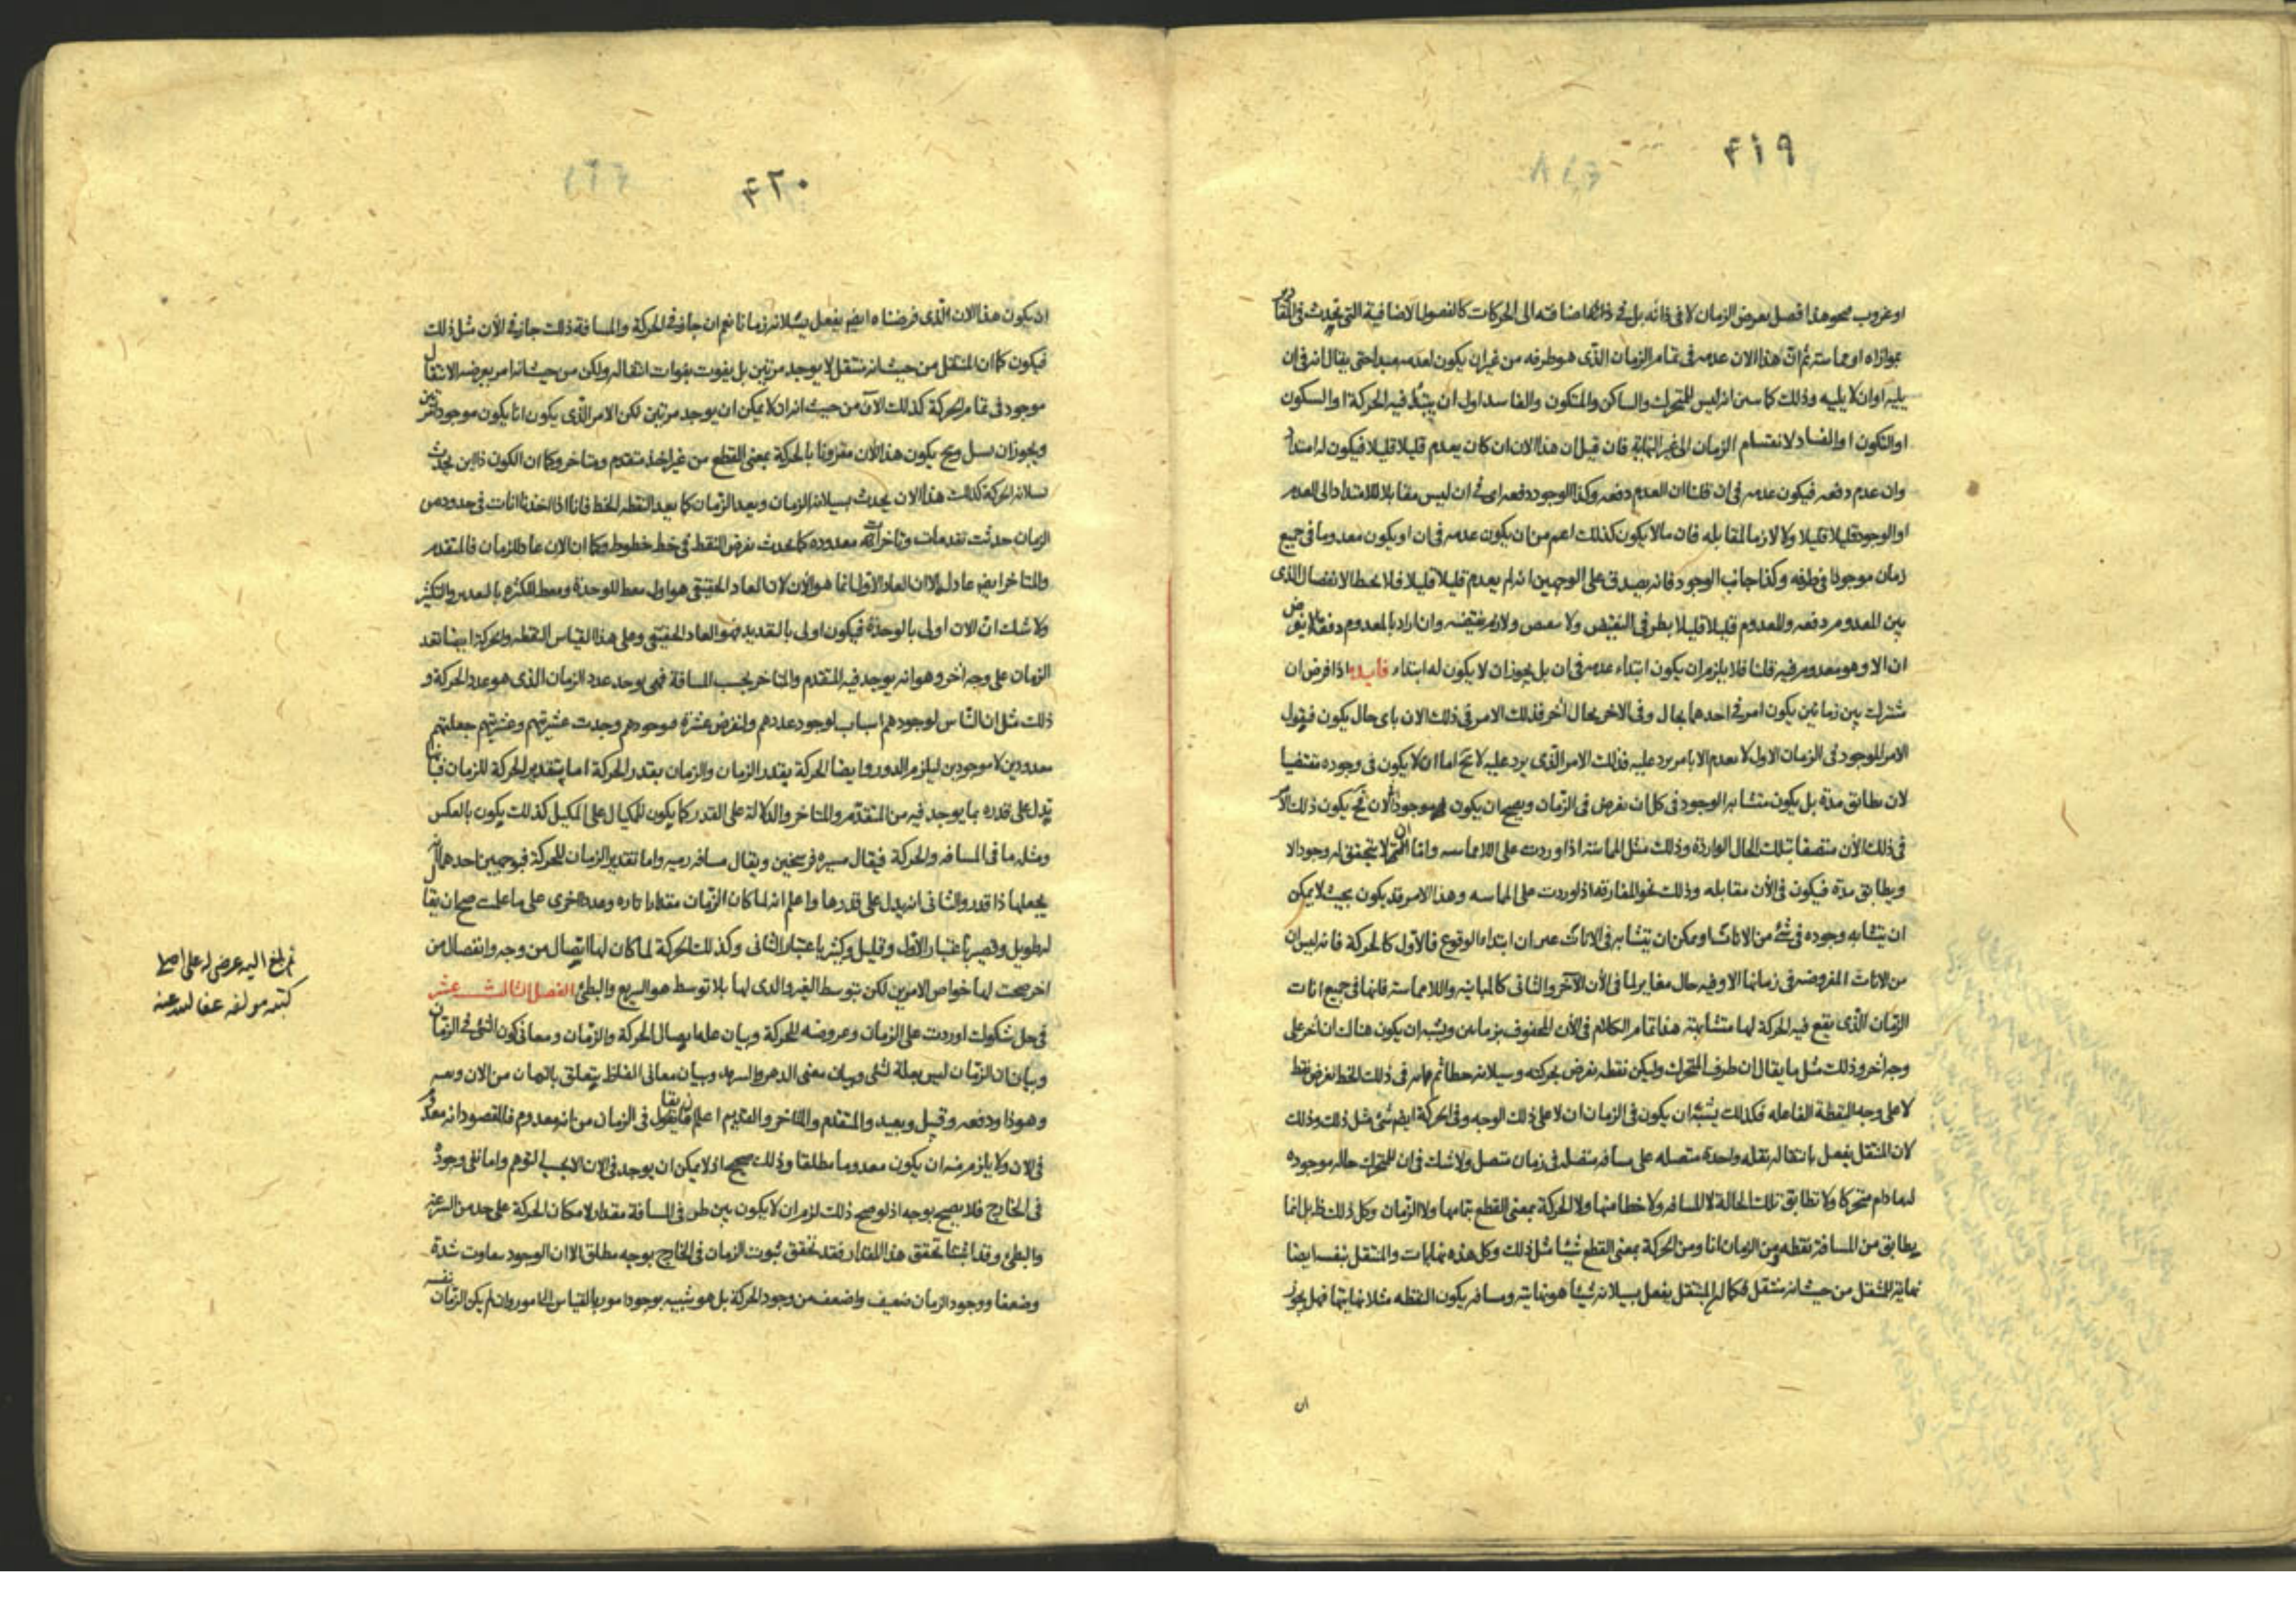 ۴۱۹
او غروب نحو هذا فصل يعرض الزمان لا فى ذاته بل فى اضافته الى الحركات كالفصول الاضافية التى تحدث فى المقادير
بموازاه او مماسته ثم ان هذا الان عدمه فى تمام الزمان الذى هو طرفه من غير ان يكون لعدمه مبدا حتى يقال انه فى ان
يليه او ان لا يليه وذلك كما انه ليس للمتحرك والساكن والمتكون والفاسد اول ان يبتدئ فيه الحركة او السكون
او التكون او الفساد لانقسام الزمان الى غير النهاية فان قيل ان هذا الان ان كان يعدم قليلا قليلا فيكون له امتداد
وان عدم دفعه فيكون عدمه فى ان قلنا ان العدم دفعه وكذا الوجود دفعه اى فى ان ليس مقابلا للامتداد الى العدم
او الوجود قليلا قليلا ولا لازما لمقابله فان ما لا يكون كذلك اعم من ان يكون عدمه فى ان او يكون معدوما فى جميع
زمان موجودا فى طرفه وكذا جانب الوجود فانه يصدق على الوجهين انه لم يعدم قليلا قليلا فلا يحيط الانفصال الذى
بين المعدوم دفعه والمعدوم قليلا قليلا بطرفى النقيض ولا ولازم نقيضه وان اراد بالمعدوم دفعة
ان الا وهو معدوم فيه قلنا فلا يلزم ان يكون ابتداء عدمه فى ان بل يجوز ان لا يكون له ابتداء فايده اذا فرض ان
مشترك بين زمانين يكون امر فى احدهما بحال وفى الاخر بحال اخر فذلك الامر فى ذلك الان باى حال يكون فيقول
الامر الموجود فى الزمان الاول لا يعدم الا بامر يرد عليه فذلك الامر الذى يرد عليه لا يخ اما ان لا يكون فى وجوده مقتضيا
لان يطابق مدة بل يكون متشابه الوجود فى كل ان يفرض فى الزمان ويصح ان يكون موجودا الان فح يكون ذلك الامر
فى ذلك الأن متصفا بتلك الحال الواردة وذلك مثل المماسة اذا وردت على اللامماسه واما ان لا يتحقق له وجود الا
ويطابق مدة فيكون فى الأن مقابله وذلك نحو المفارقة اذا وردت على المماسه وهذا الامر قد يكون بحيث لا يمكن
ان يتشابه وجوده فى شئ من الانات او يمكن ان يتشابه فى الانات ان ابتداء الوقوع فالأول كالحركة فانه ليس ان
من الانات المفروضه فى زمانها الا وفيه حال مغاير لما فى الأن الآخر والثانى كالمباينه واللامماسة فانها فى جميع انات
الزمان الذى يقع فيه الحركة لها متشابهة هذا تمام الكلام فى الأن المحفوف بزمانين ويشبه ان يكون هناك ان اخر على
وجه اخر وذلك مثل ما يقال ان طرف المتحرك وليكن نقطه يفرض بحركته وسيلانه خطا ثم فى ذلك الخط يفرض نقط
لا على وجه النقطة الفاعله فكذلك يشبه ان يكون فى الزمان ان لا على ذلك الوجه وفى الحركة ايضا شئ مثل ذلك وذلك
لان المنتقل يفعل بانتقاله نقله واحدة متصله على مسافه متصل فى زمان متصل ولا شك فى ان للمتحرك حاله موجوده
لها ما دام متحركا ولا تطابق تلك الحالة لا المسافه ولا خطا منها ولا الحركة بمعنى القطع بتمامها ولا الزمان وكل ذلك ظ بل انما
يطابق من المسافة نقطه ومن الزمان انا ومن الحركة بمعنى القطع شيئا مثل ذلك وكل هذه نهايات والمنتقل بنفسه ايضا
نهاية للمنتقل من حيث انه منتقل فكما ان المنتقل يفعل بسيلانه شيئا هو نهايته ومسافه يكون النقطه مثلا نهايتها فهل يجوز
ان
۴۲۰
ان يكون هذا الان الذى فرضناه ايضا يفعل بسيلانه زمانا نعم ان جاز فى الحركة والمسافة ذلك جاز فى الأن مثل ذلك
فيكون كما ان المنتقل من حيث انه منتقل لا يوجد مرتين بل يفوت بفوات انتقاله ولكن من حيث انه امر يعرضه الانتقال
موجود فى تمام الحركة كذلك الآن من حيث انه ان لا يمكن ان يوجد مرتين لكن الامر الذى يكون انا يكون موجودا مرتين
ويجوز ان وح يكون هذا الان مقرونا بالحركة بمعنى القطع من غير اخذ متقدم ومتاخر وكما ان الكون ذا اين يحدث
بسيلانه الحركة كذلك هذا الان يحدث بسيلانه الزمان ويعد الزمان كما يعد النقطه الخط فانا اذا اخذنا انات فى حدود من
الزمان حدثت تقدمات وتاخرات معدوده كما يحدث بفرض النقط فى خط خطوط وكما ان الان عاد للزمان فالمتقدم
والمتاخر ايضا عاد له الا ان العاد الاول انما هو الأن لان العاد الحقيقى هو اول معط للوحدة ومعط للكثره بالتعديد والتكثير
ولا شك ان الان اولى بالوحدة فيكون اولى بالتعديد فهو العاد الحقيقى وعلى هذا القياس النقطه والحركة ايضا تعد
الزمان على وجه اخر وهو انه يوجد فيه المتقدم والمتاخر بحسب المسافة فهى يوجد عدد الزمان الذى هو عدد الحركة و
ذلك مثل ان الناس لوجودهم اسباب لوجود عددهم ولنفرض عشرة فوجودهم وجدت عشريتهم وعشريتهم جعلتهم
معدودين لا موجودين ليلزم الدور وايضا الحركة يقدر الزمان والزمان يقدر الحركة اما تقدير الحركة للزمان فبانها
تدل على قدره بما يوجد فيه من المتقدم والمتاخر والدلالة على القدر كما يكون للمكيال على المكيل كذلك يكون بالعكس
ومثله ما فى المسافه والحركة فيقال مسيره فرسخين ويقال مسافه رميه واما تقدير الزمان للحركة فبوجهين احدهما انه
يجعلها ذا قدر والثانى انه يدل على قدرها واعلم انه لما كان الزمان مقدارا تاره وعددا اخرى على ما علمت صح ان يقال
له طويل وقصير باعتبار الاول وقليل وكثير باعتبار الثانى وكذلك الحركة لما كان لها اتصال من وجه وانفصال من
اخر صحت لها خواص الامرين لكن بتوسط الغير والذى لها بلا توسط هو السريع والبطئ الفصل الثالث عشر
فى حل شكوك اوردت على الزمان وعروضه للحركة وبيان علة اتصال الحركة والزمان ومعانى كون الشئ فى الزمان
وبيان ان الزمان ليس بعلة لشئ وبيان معنى الدهر والسرمد وبيان معانى الفاظ يتعلق بالزمان من الان وبغته
وهوذا ودفعه وقبل وبعيد والمتقدم والمتاخر والقديم اعلم ان ما يقال فى الزمان من انه معدوم فالمقصود انه معدوم
فى الان ولا يلزم منه ان يكون معدوما مطلقا وذلك صحيح اذ لا يمكن ان يوجد فى الان الا بحسب التوهم واما نفى وجوده
فى الخارج فلا يصح بوجه اذ لو صح ذلك لزم ان لا يكون بين طرفى المسافة مقدار لامكان الحركة على حد من السرعة
والبطئ وقد اثبتنا تحقق هذا المقدار فقد تحقق ثبوت الزمان فى الخارج بوجه مطلق الا ان الوجود يتفاوت شدة
وضعفا ووجود الزمان ضعيف واضعف من وجود الحركة بل هو شبيه بوجود امور بالقياس الى امور وان لم يكن الزمان نفسه
ثم بلغ اليه عرض له على اصلى
كتبه مولفه عفا الله عنه